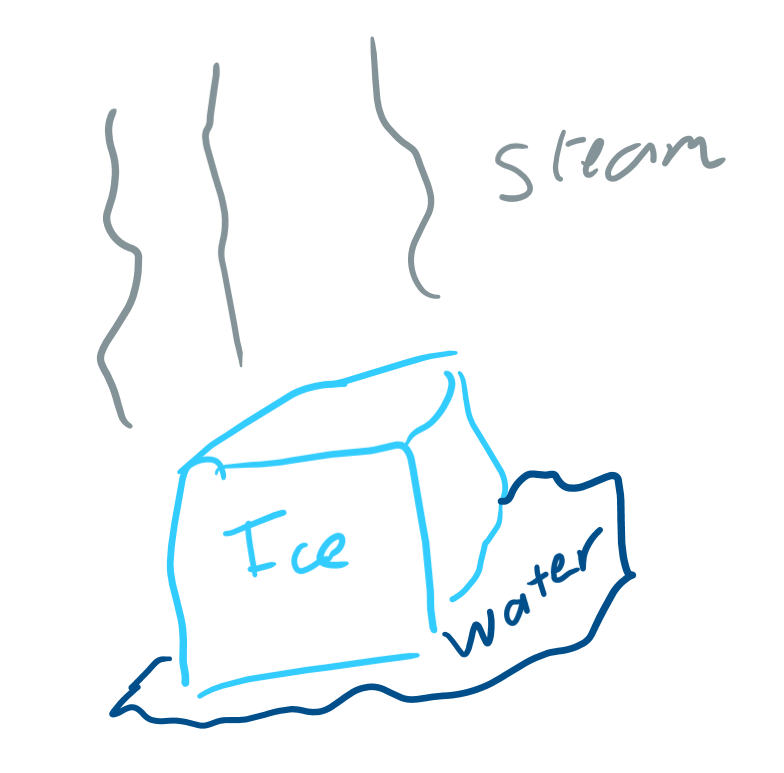 steam
Ice
water